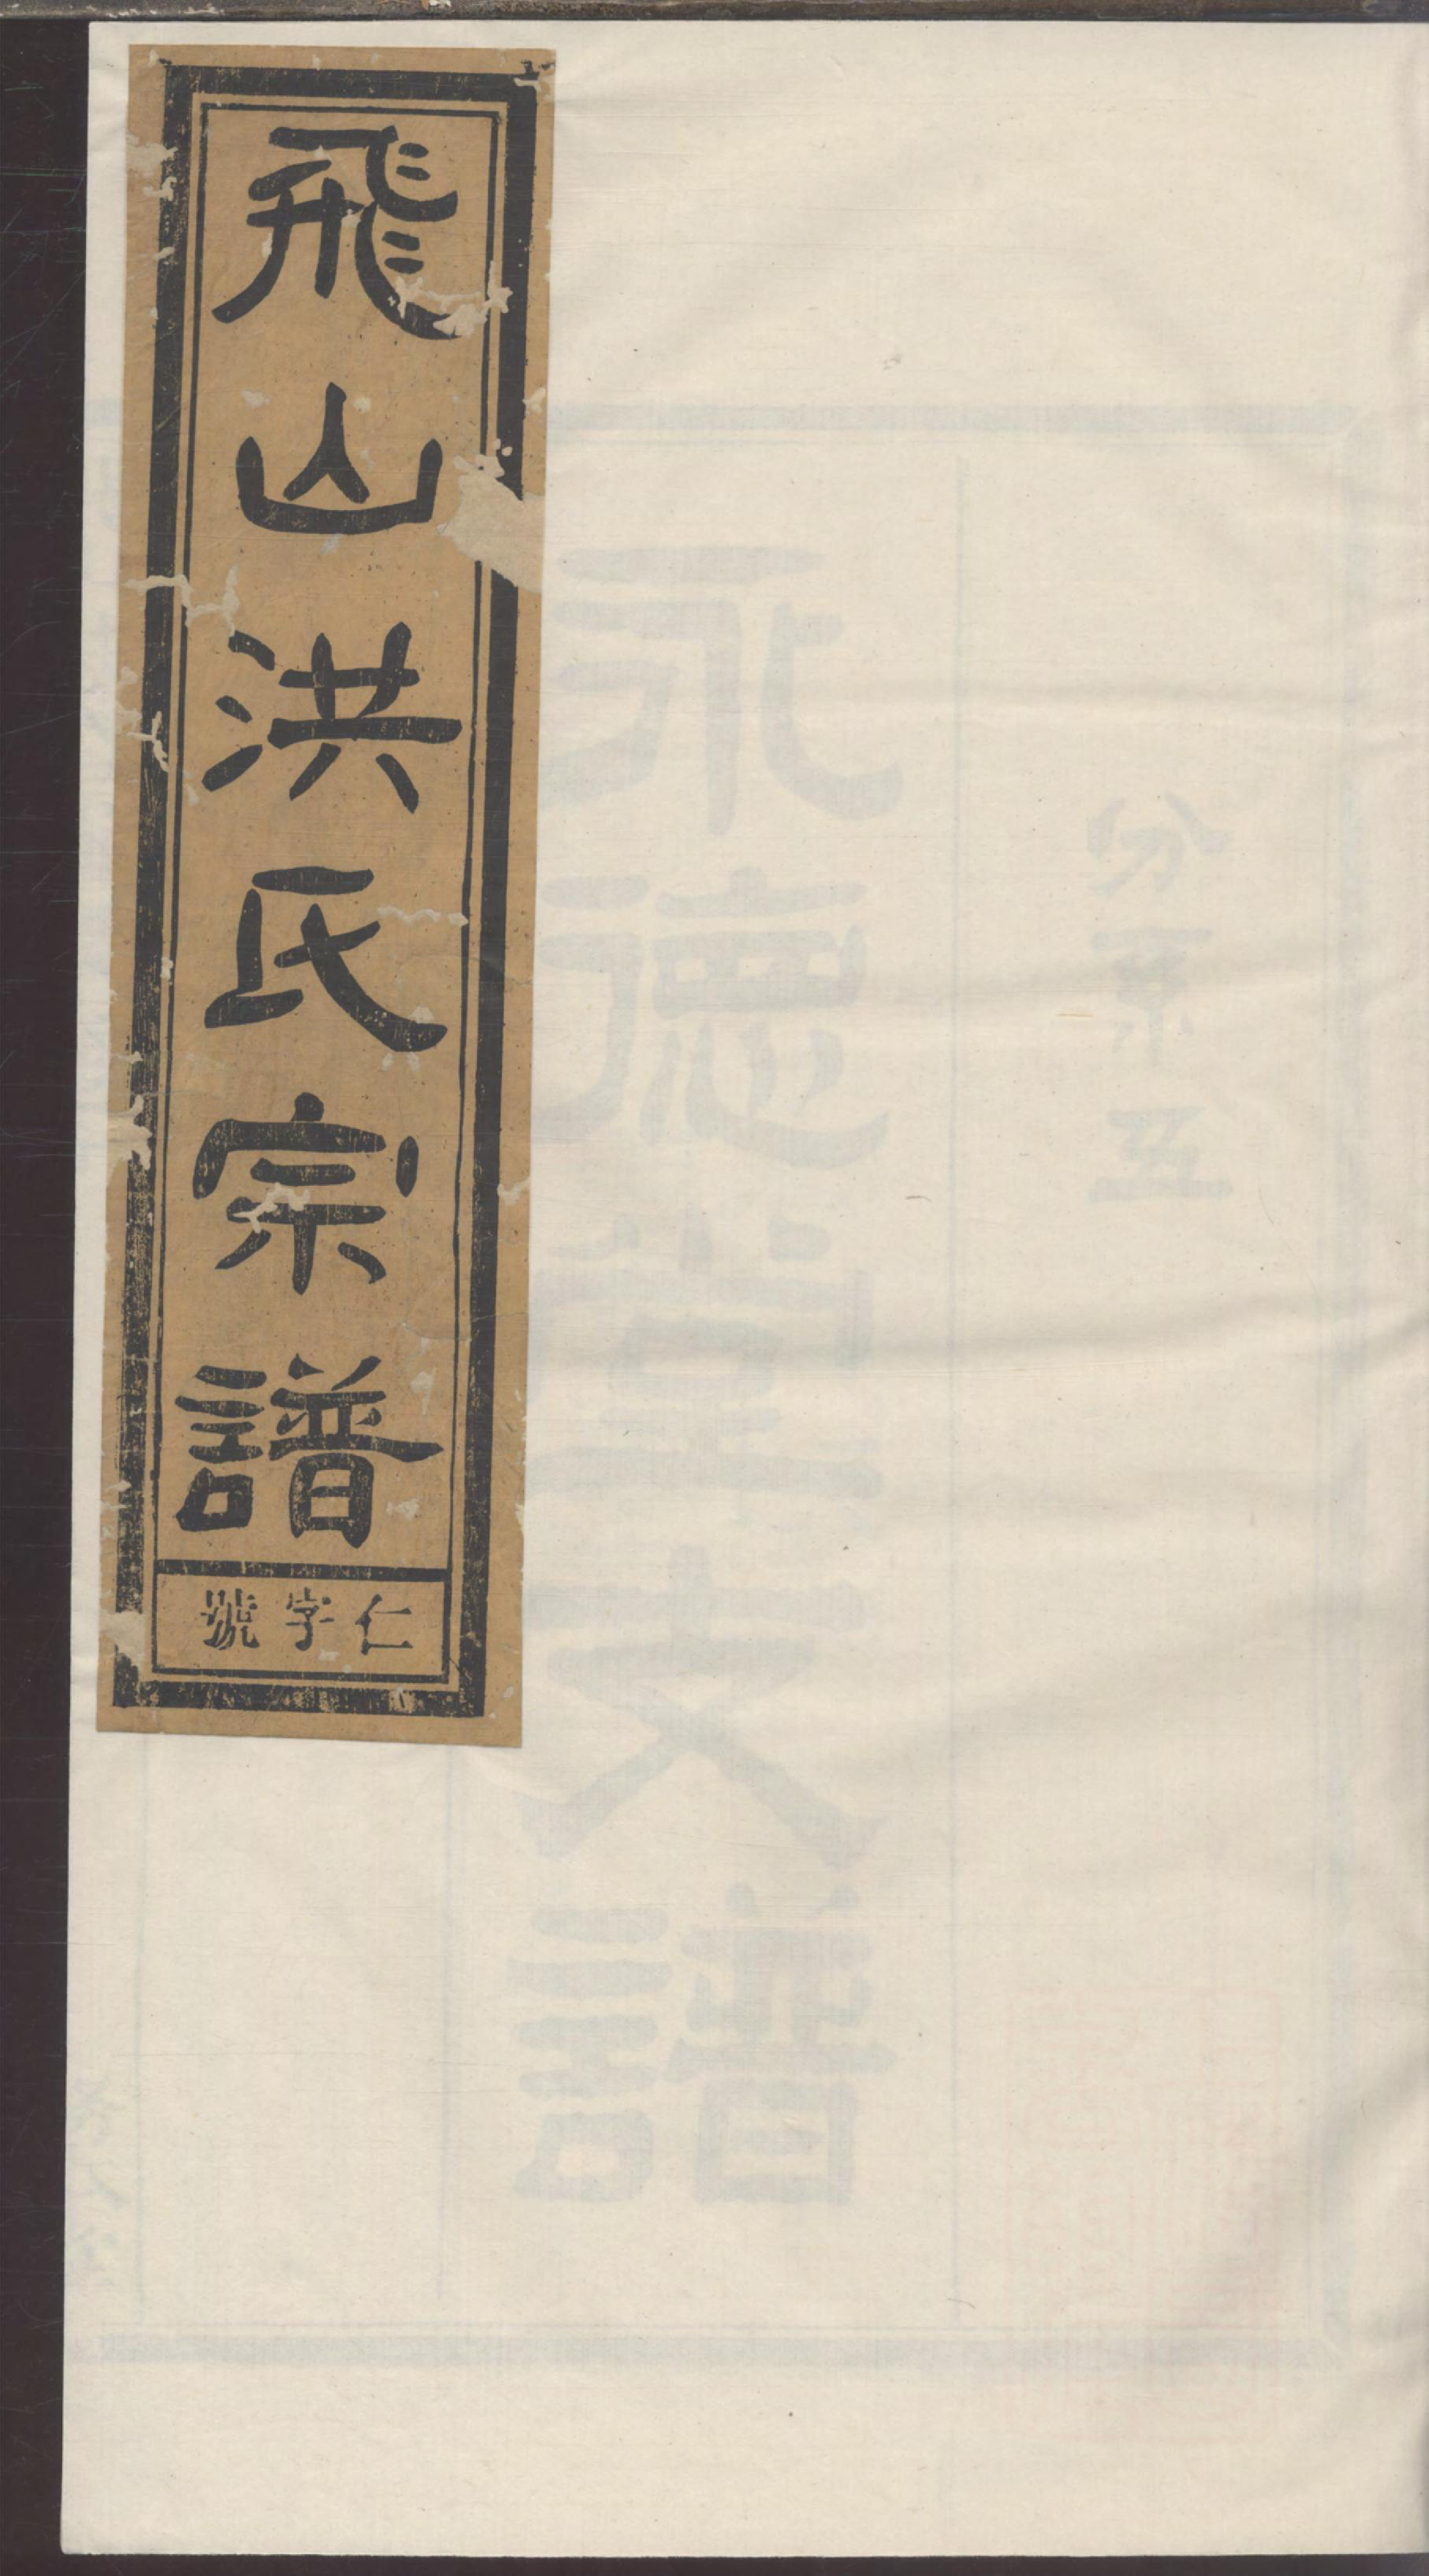 飛山洪氏宗譜
仁字號